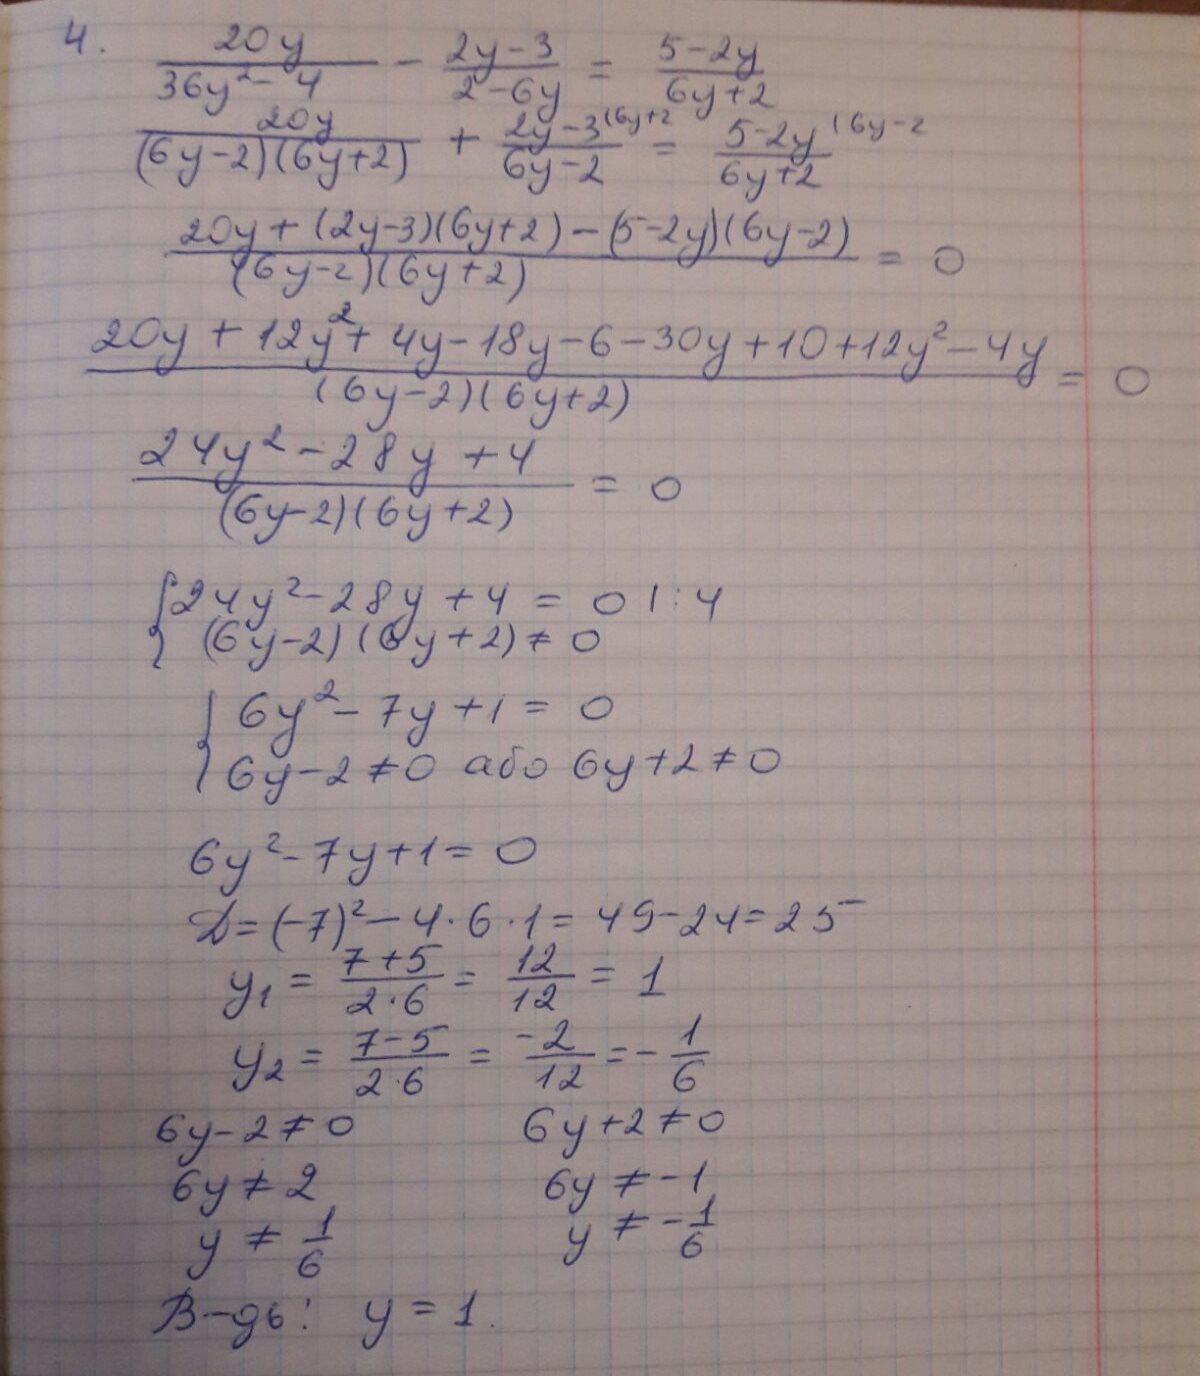 4. 20y/(36y² - 4) - (2y-3)/(2-6y) = (5-2y)/(6y+2)
20y/((6y-2)(6y+2)) + (2y-3)/(6y-2) (6y+2 = (5-2y)/(6y+2) (6y-2
(20y + (2y-3)(6y+2) - (5-2y)(6y-2))/((6y-2)(6y+2)) = 0
(20y + 12y² + 4y - 18y - 6 - 30y + 10 + 12y² - 4y)/((6y-2)(6y+2)) = 0
(24y² - 28y + 4)/((6y-2)(6y+2)) = 0
{ 24y² - 28y + 4 = 0 | : 4
(6y-2)(6y+2) ≠ 0
{ 6y² - 7y + 1 = 0
6y-2 ≠ 0 або 6y+2 ≠ 0
6y² - 7y + 1 = 0
D = (-7)² - 4·6·1 = 49-24 = 25
y₁ = (7+5)/(2·6) = 12/12 = 1
y₂ = (7-5)/(2·6) = -2/12 = -1/6
6y-2 ≠ 0 6y+2 ≠ 0
6y ≠ 2 6y ≠ -1
y ≠ 1/6 y ≠ -1/6
В-дь: y = 1.